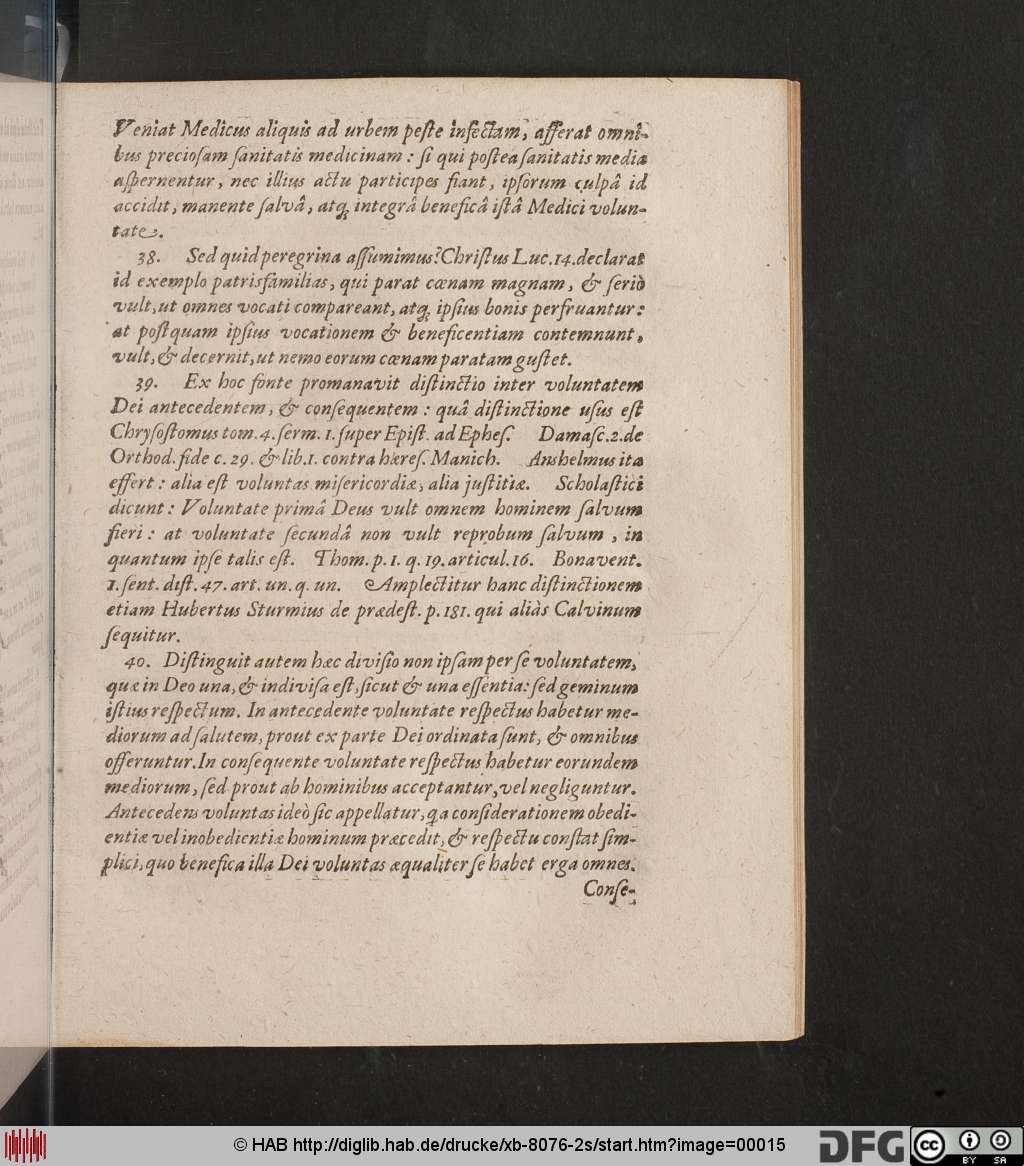 Veniat Medicus aliquis ad urbem peſte infectam, afferat omni-
bus precioſam ſanitatis medicinam: ſi qui poſtea ſanitatis media
aſpernentur, nec illius actu participes fiant, ipſorum culpâ id
accidit, manente ſalvâ, atq́; integrâ beneficâ iſtâ Medici volun-
tate.
38. Sed quid peregrina aſſumimus? Chriſtus Luc. 14. declarat
id exemplo patrisfamilias, qui parat cœnam magnam, & ſeriò
vult, ut omnes vocati compareant, atq́; ipſius bonis perfruantur:
at poſtquam ipſius vocationem & beneficentiam contemnunt,
vult, & decernit, ut nemo eorum cœnam paratam guſtet.
39. Ex hoc fonte promanavit diſtinctio inter voluntatem
Dei antecedentem, & conſequentem: quâ diſtinctione uſus eſt
Chryſoſtomus tom. 4. ſerm. 1. ſuper Epiſt. ad Epheſ. Damaſc. 2. de
Orthod. fide c. 29. & lib. 1. contra hæreſ. Manich. Anshelmus ita
effert: alia eſt voluntas miſericordiæ, alia juſtitiæ. Scholaſtici
dicunt: Voluntate primâ Deus vult omnem hominem ſalvum
fieri: at voluntate ſecundâ non vult reprobum ſalvum, in
quantum ipſe talis eſt. Thom. p. 1. q. 19. articul. 16. Bonavent.
1. ſent. diſt. 47. art. un. q. un. Amplectitur hanc diſtinctionem
etiam Hubertus Sturmius de prædeſt. p. 181. qui aliàs Calvinum
ſequitur.
40. Diſtinguit autem hæc diviſio non ipſam per ſe voluntatem,
quæ in Deo una, & indiviſa eſt, ſicut & una eſſentia: ſed geminum
iſtius reſpectum. In antecedente voluntate reſpectus habetur me-
diorum ad ſalutem, prout ex parte Dei ordinata ſunt, & omnibus
offeruntur. In conſequente voluntate reſpectus habetur eorundem
mediorum, ſed prout ab hominibus acceptantur, vel negliguntur.
Antecedens voluntas ideò ſic appellatur, qa conſiderationem obedi-
entiæ vel inobedientiæ hominum præcedit, & reſpectu conſtat ſim-
plici, quo benefica illa Dei voluntas æqualiter ſe habet erga omnes.
Conſe-
© HAB http://diglib.hab.de/drucke/xb-8076-2s/start.htm?image=00015
DFG
cc BY SA